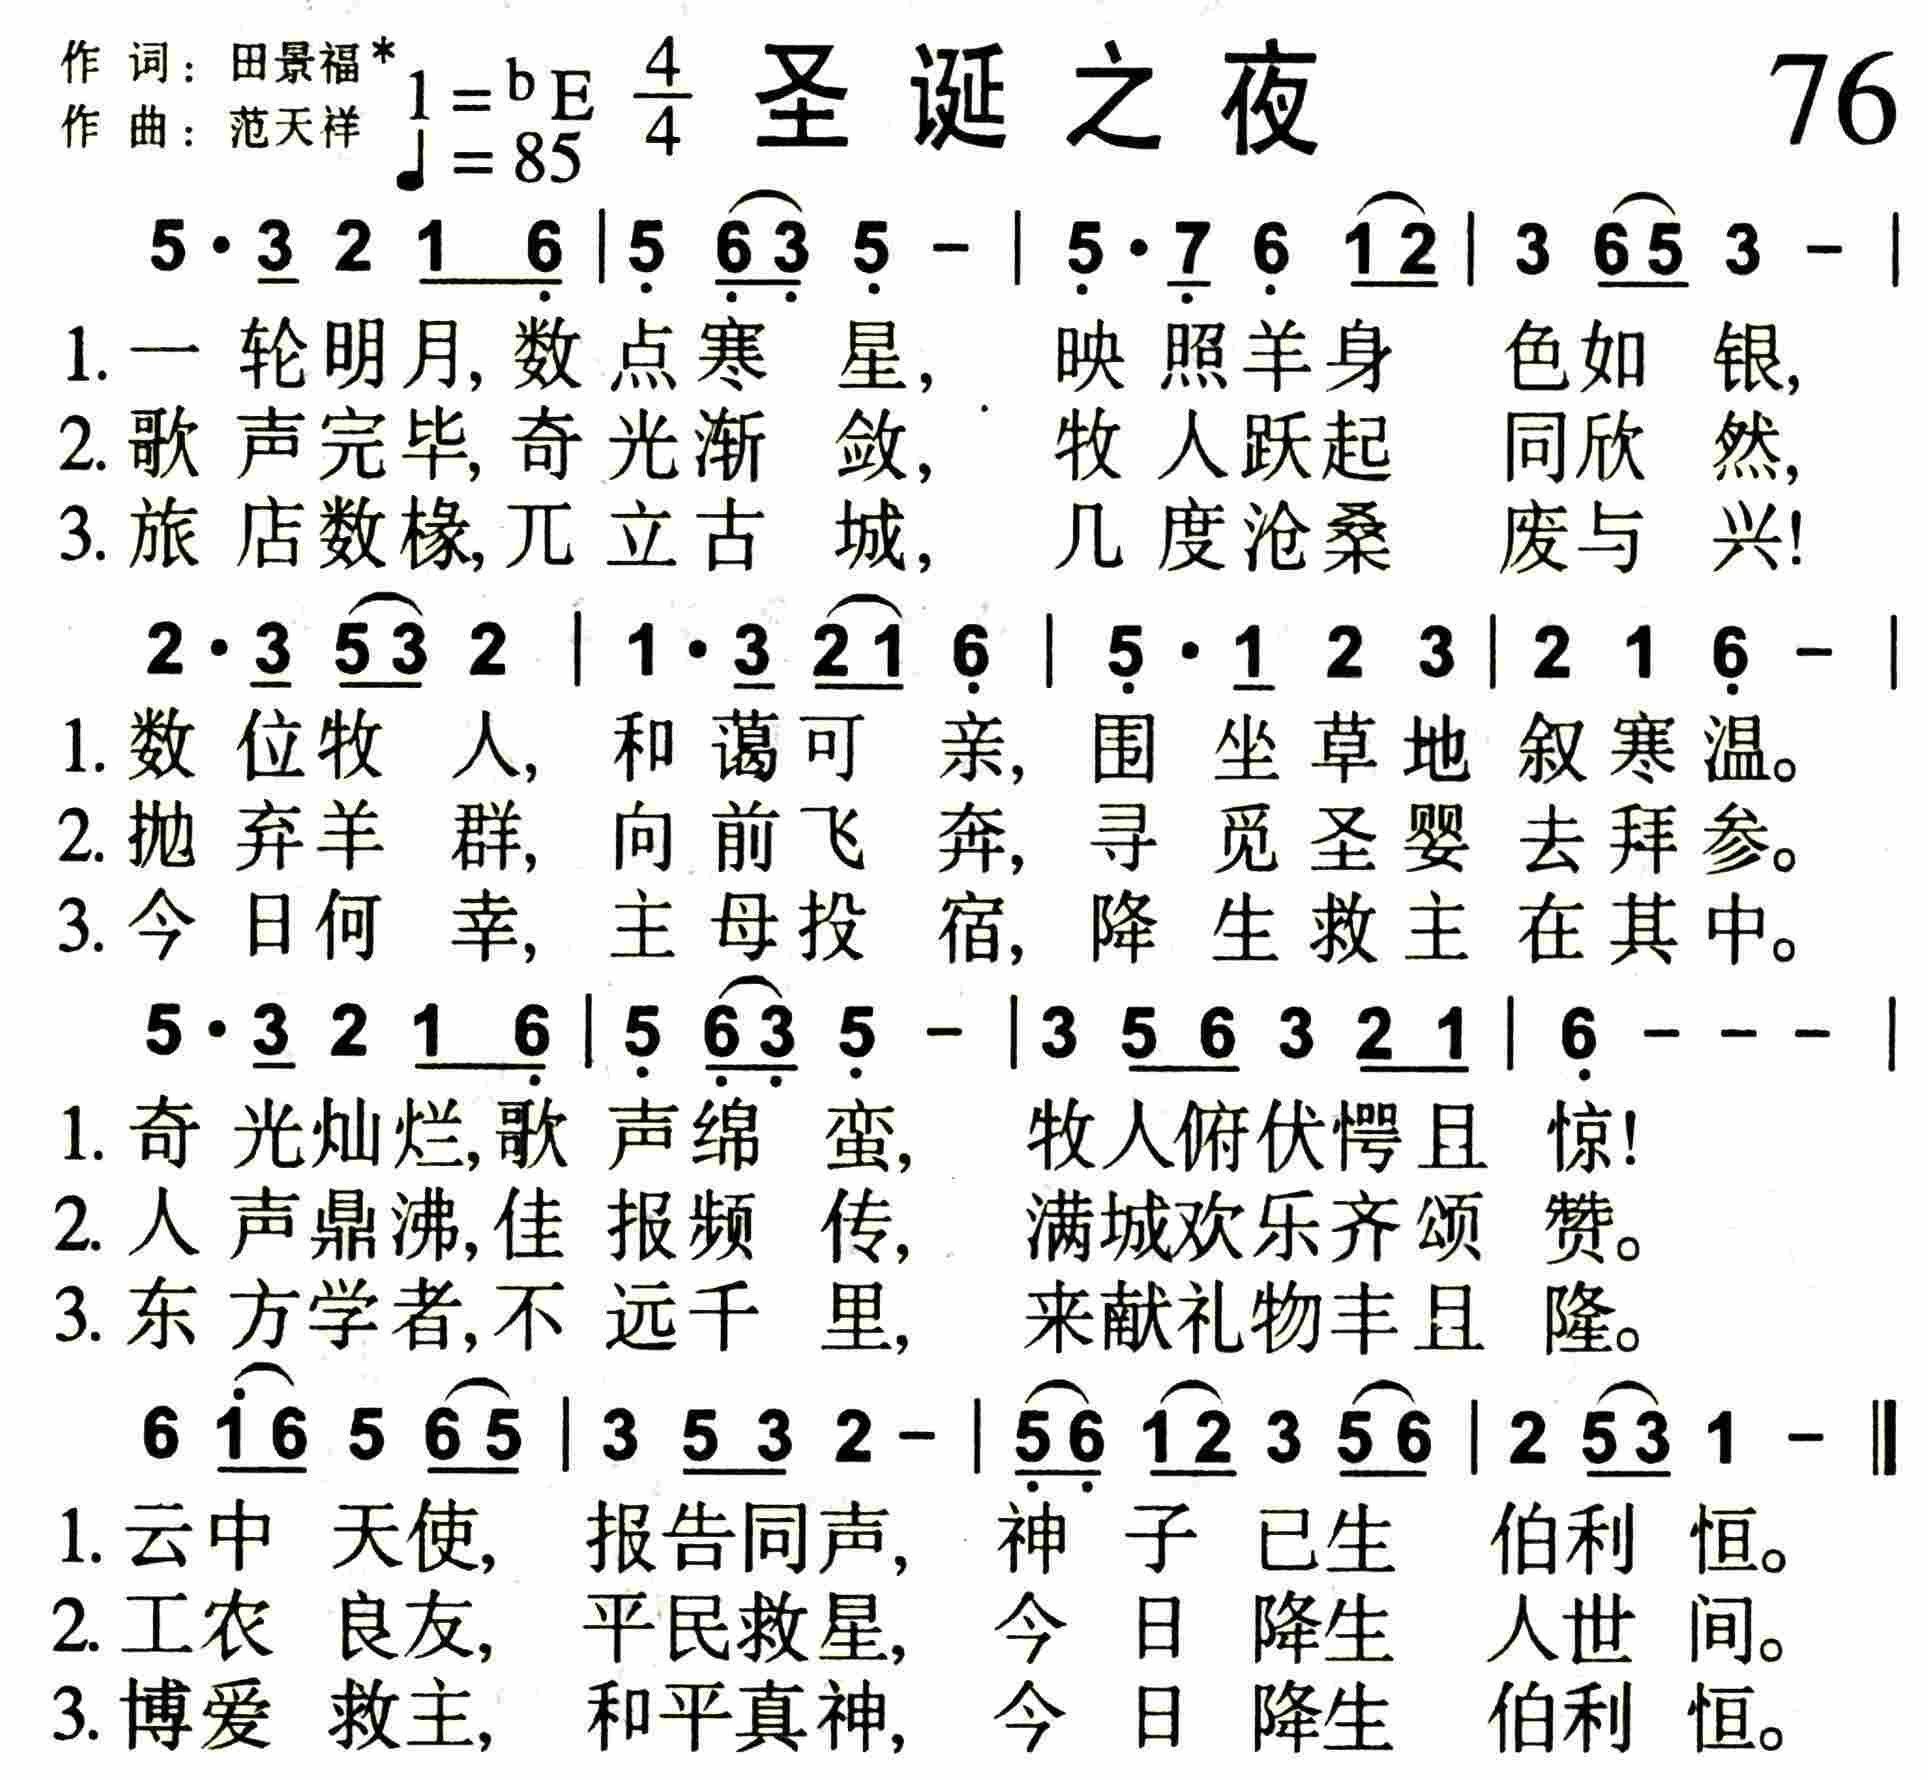 作 词：田景福* 1=ᵇE 4/4 圣诞之夜 76
作 曲：范天祥 ♩=85
5·3 2 1 6 | 5 63 5 - | 5·7 6 12 | 3 65 3 - |
1.一轮明月,数点寒星, 映照羊身 色如银,
2.歌声完毕,奇光渐敛, 牧人跃起 同欣然,
3.旅店数椽,兀立古城, 几度沧桑 废与兴!
2·3 53 2 | 1·3 21 6 | 5·1 2 3 | 2 1 6 - |
1.数位牧人, 和蔼可亲, 围坐草地叙寒温。
2.抛弃羊群, 向前飞奔, 寻觅圣婴去拜参。
3.今日何幸, 主母投宿, 降生救主在其中。
5·3 2 1 6 | 5 63 5 - | 3 5 6 3 2 1 | 6 - - - |
1.奇光灿烂,歌声绵蛮, 牧人俯伏愕且惊!
2.人声鼎沸,佳报频传, 满城欢乐齐颂赞。
3.东方学者,不远千里, 来献礼物丰且隆。
6 16 5 65 | 3 5 3 2 - | 56 12 3 56 | 2 53 1 - ‖
1.云中天使, 报告同声, 神子已生 伯利恒。
2.工农良友, 平民救星, 今日降生 人世间。
3.博爱救主, 和平真神, 今日降生 伯利恒。